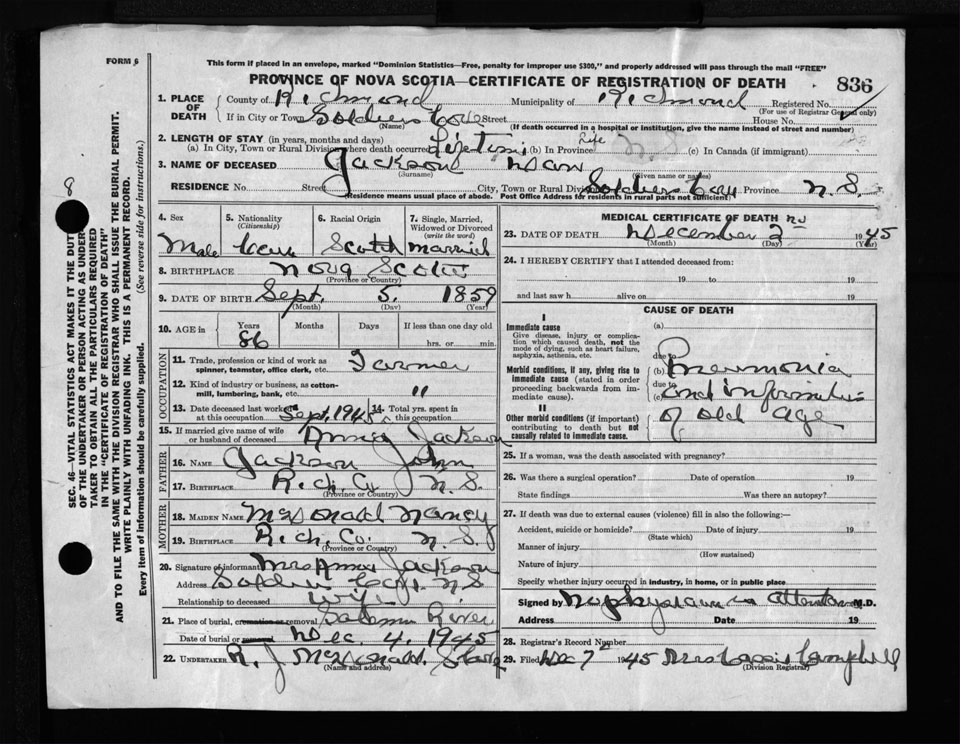 FORM 6
This form if placed in an envelope, marked "Dominion Statistics—Free, penalty for improper use $300," and properly addressed will pass through the mail "FREE"
PROVINCE OF NOVA SCOTIA—CERTIFICATE OF REGISTRATION OF DEATH 836
1. PLACE OF DEATH
County of Richmond Municipality of Richmond Registered No.
(For use of Registrar General only)
If in City or Town Soldiers Cove Street House No.
(Name) (If death occurred in a hospital or institution, give the name instead of street and number)
2. LENGTH OF STAY (in years, months and days)
(a) In City, Town or Rural Division where death occurred Lifetime (b) In Province Life (c) In Canada (if immigrant)
3. NAME OF DECEASED Jackson Dan
(Surname) (Given name or names)
RESIDENCE No. Street City, Town or Rural Division Soldiers Cove Province N.S.
(Residence means usual place of abode. Post Office Address for residents in rural parts not sufficient)
4. Sex
Male
5. Nationality
(Citizenship)
6. Racial Origin
Scotch
7. Single, Married, Widowed or Divorced
(write the word)
Married
8. BIRTHPLACE Nova Scotia
(Province or Country)
9. DATE OF BIRTH Sept. 5. 1859
(Month) (Day) (Year)
10. AGE in Years Months Days If less than one day old
86 hrs. or min.
OCCUPATION
11. Trade, profession or kind of work as spinner, teamster, office clerk, etc. Farmer
12. Kind of industry or business, as cotton-mill, lumbering, bank, etc. "
13. Date deceased last worked at this occupation Sept. 1945
14. Total yrs. spent in this occupation
15. If married give name of wife or husband of deceased Annie Jackson
FATHER
16. NAME Jackson John
17. BIRTHPLACE Rich. Co. N.S.
(Province or Country)
MOTHER
18. MAIDEN NAME McDonald Nancy
19. BIRTHPLACE Rich. Co. N.S.
(Province or Country)
20. Signature of informant Mrs Annie Jackson
Address Soldiers Cove N.S.
Relationship to deceased Wife
21. Place of burial, cremation or removal Salmon River
Date of burial or removal Dec. 4. 1945
22. UNDERTAKER R. J McDonald
(Name and address)
MEDICAL CERTIFICATE OF DEATH
23. DATE OF DEATH December 2nd 1945
(Month) (Day) (Year)
24. I HEREBY CERTIFY that I attended deceased from:
19 to 19
and last saw h alive on 19
CAUSE OF DEATH
I
Immediate cause
Give disease, injury or complication which caused death, not the mode of dying, such as heart failure, asphyxia, asthenia, etc.
(a)
due to
Morbid conditions, if any, giving rise to immediate cause (stated in order proceeding backwards from immediate cause).
(b) Pneumonia
due to
(c) and infirmities
of old age
II
Other morbid conditions (if important) contributing to death but not causally related to immediate cause.
25. If a woman, was the death associated with pregnancy?
26. Was there a surgical operation? Date of operation 19
State findings Was there an autopsy?
27. If death was due to external causes (violence) fill in also the following:—
Accident, suicide or homicide? Date of injury 19
(State which)
Manner of injury
(How sustained)
Nature of injury
Specify whether injury occurred in industry, in home, or in public place
Signed by No physician in attendance M.D.
Address Date 19
28. Registrar's Record Number
29. Filed Dec 7 1945 Mrs Campbell
(Division Registrar)
8
SEC. 46—VITAL STATISTICS ACT MAKES IT THE DUTY
OF THE UNDERTAKER OR PERSON ACTING AS UNDER-
TAKER TO OBTAIN ALL THE PARTICULARS REQUIRED
IN THE "CERTIFICATE OF REGISTRATION OF DEATH"
AND TO FILE THE SAME WITH THE DIVISION REGISTRAR WHO SHALL ISSUE THE BURIAL PERMIT.
WRITE PLAINLY WITH UNFADING INK. THIS IS A PERMANENT RECORD.
Every item of information should be carefully supplied. (See reverse side for instructions.)